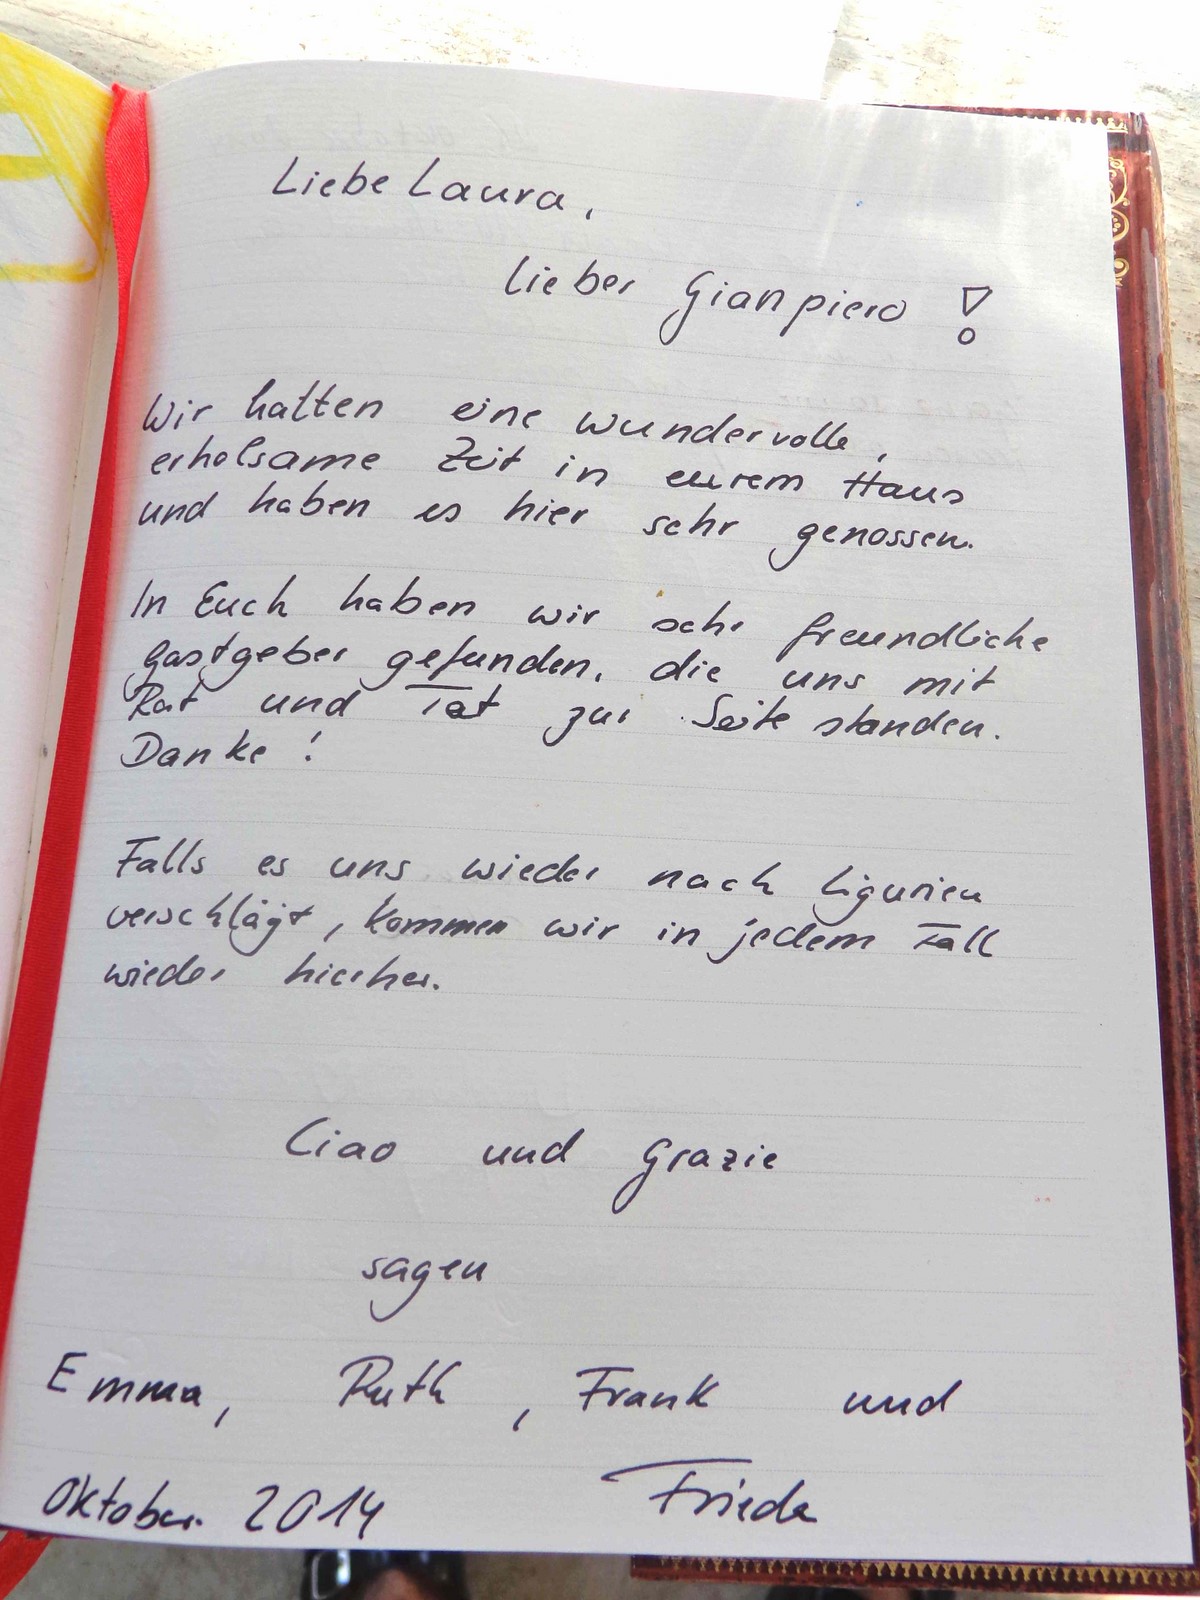 Liebe Laura,
lieber Gianpiero !
Wir hatten eine wundervolle,
erholsame Zeit in eurem Haus
und haben es hier sehr genossen.
In Euch haben wir sehr freundliche
Gastgeber gefunden, die uns mit
Rat und Tat zur Seite standen.
Danke !
Falls es uns wieder nach Ligurien
verschlägt, kommen wir in jedem Fall
wieder hierher.
Ciao und Grazie
sagen
Emma, Ruth, Frank und
Frieda
Oktober 2014